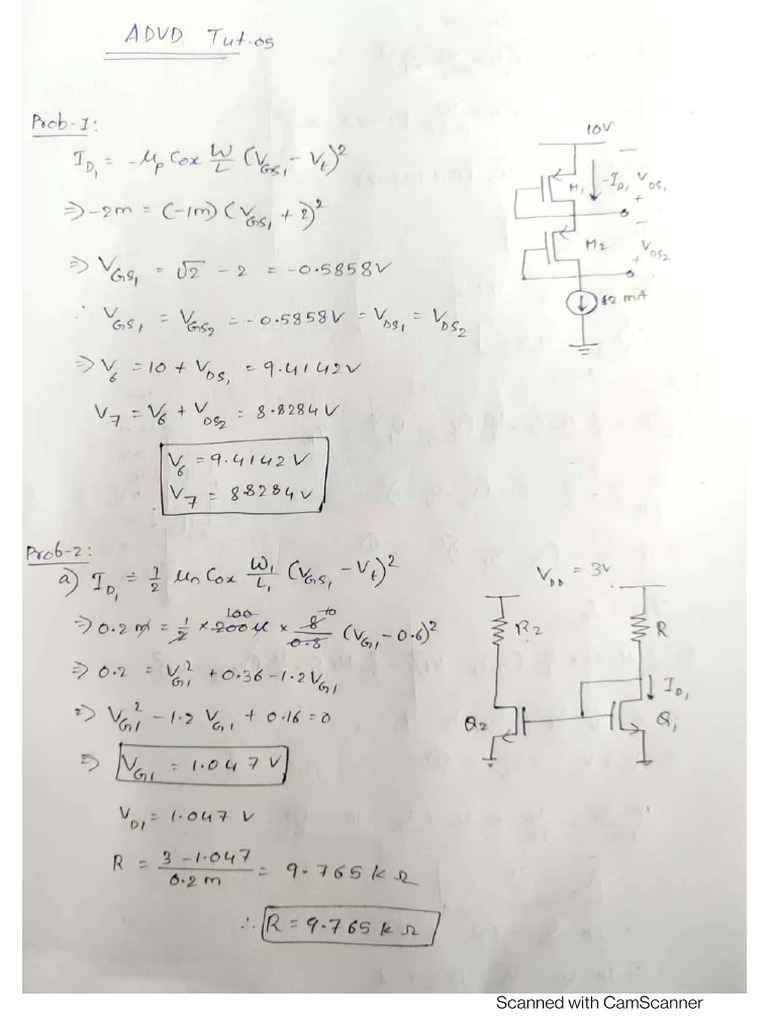 ADVD Tut-05
Prob-1:
I_D₁ = -μp Cox W/L (V_GS₁ - Vt)²
⇒ -2m = (-1m) (V_GS₁ + 2)²
⇒ V_GS₁ = √2 - 2 = -0.5858V
∴ V_GS₁ = V_GS₂ = -0.5858V = V_DS₁ = V_DS₂
⇒ V₆ = 10 + V_DS₁ = 9.4142V
V₇ = V₆ + V_DS₂ = 8.8284V
V₆ = 9.4142V
V₇ = 8.8284V
10V
M₁
-I_D₁
V_DS₁
-
+
M₂
V_DS₂
-
+
2 mA
Prob-2:
a) I_D₁ = 1/2 μn Cox W₁/L₁ (V_GS₁ - Vt)²
⇒ 0.2 m = 1/2 × 200 μ × 8/0.8 (V_G₁ - 0.6)²
100
10
⇒ 0.2 = V_G₁² + 0.36 - 1.2V_G₁
⇒ V_G₁² - 1.2 V_G₁ + 0.16 = 0
⇒ V_G₁ = 1.047 V
V_D₁ = 1.047 V
R = 3 - 1.047/0.2m = 9.765 k Ω
∴ R = 9.765 k Ω
V_DD = 3V
R₂
R
I_D₁
Q₂
Q₁
Scanned with CamScanner